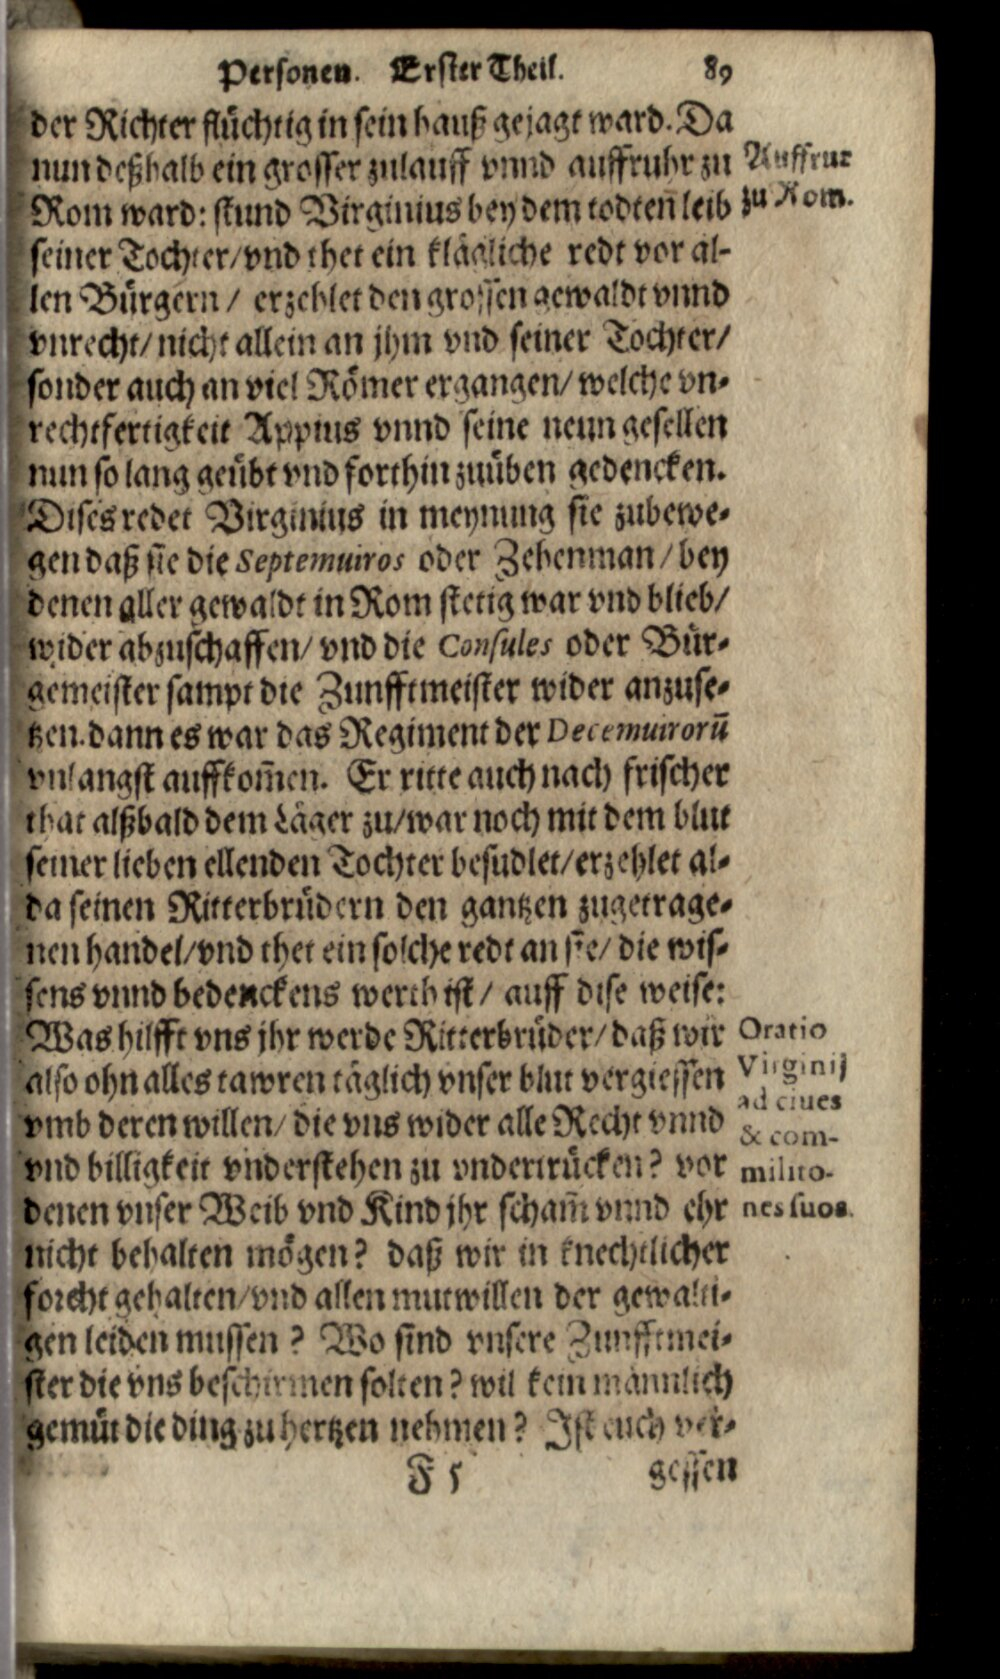 Personen. Erster Theil. 89
der Richter flüchtig in sein hauß gejagt ward. Da
nun deßhalb ein grosser zulauff vnnd auffruhr zu
Rom ward: stund Virginius bey dem todten̄ leib
seiner Tochter/ vnd thet ein klägliche redt vor al-
len Bürgern/ erzehlet den grossen gewaldt vnnd
vnrecht/ nicht allein an jhm vnd seiner Tochter/
sonder auch an viel Römer ergangen/ welche vn-
rechtfertigkeit Appius vnnd seine neun gesellen
nun so lang geübt vnd forthin zuüben gedencken.
Dises redet Virginius in meynung sie zubewe-
gen daß sie die Septemuiros oder Zehenman/ bey
denen aller gewaldt in Rom stetig war vnd blieb/
wider abzuschaffen/ vnd die Consules oder Bür-
gemeister sampt die Zunfftmeister wider anzuse-
tzen. dann es war das Regiment der Decemuirorū
vnlangst auffkom̄en. Er ritte auch nach frischer
that alßbald dem Läger zu/ war noch mit dem blut
seiner lieben ellenden Tochter besudlet/ erzehlet al-
da seinen Ritterbrüdern den gantzen zugetrage-
nen handel/ vnd thet ein solche redt an sie/ die wis-
sens vnnd bedenckens werth ist/ auff dise weise:
Was hilfft vns jhr werde Ritterbrüder/ daß wir
also ohn alles tawren täglich vnser blut vergiessen
vmb deren willen/ die vns wider alle Recht vnnd
vnd billigkeit vnderstehen zu vndertrücken? vor
denen vnser Weib vnd Kind jhr scham̄ vnnd ehr
nicht behalten mögen? daß wir in knechtlicher
forcht gehalten/ vnd allen mutwillen der gewalti-
gen leiden mussen? Wo sind vnsere Zunfftmei-
ster die vns beschirmen solten? wil kein männlich
gemüt die ding zu hertzen nehmen? Ist euch ver-
F 5 gessen
Auffrur
zu Rom.
Oratio
Virginij
ad ciues
& com-
milito-
nes suos.